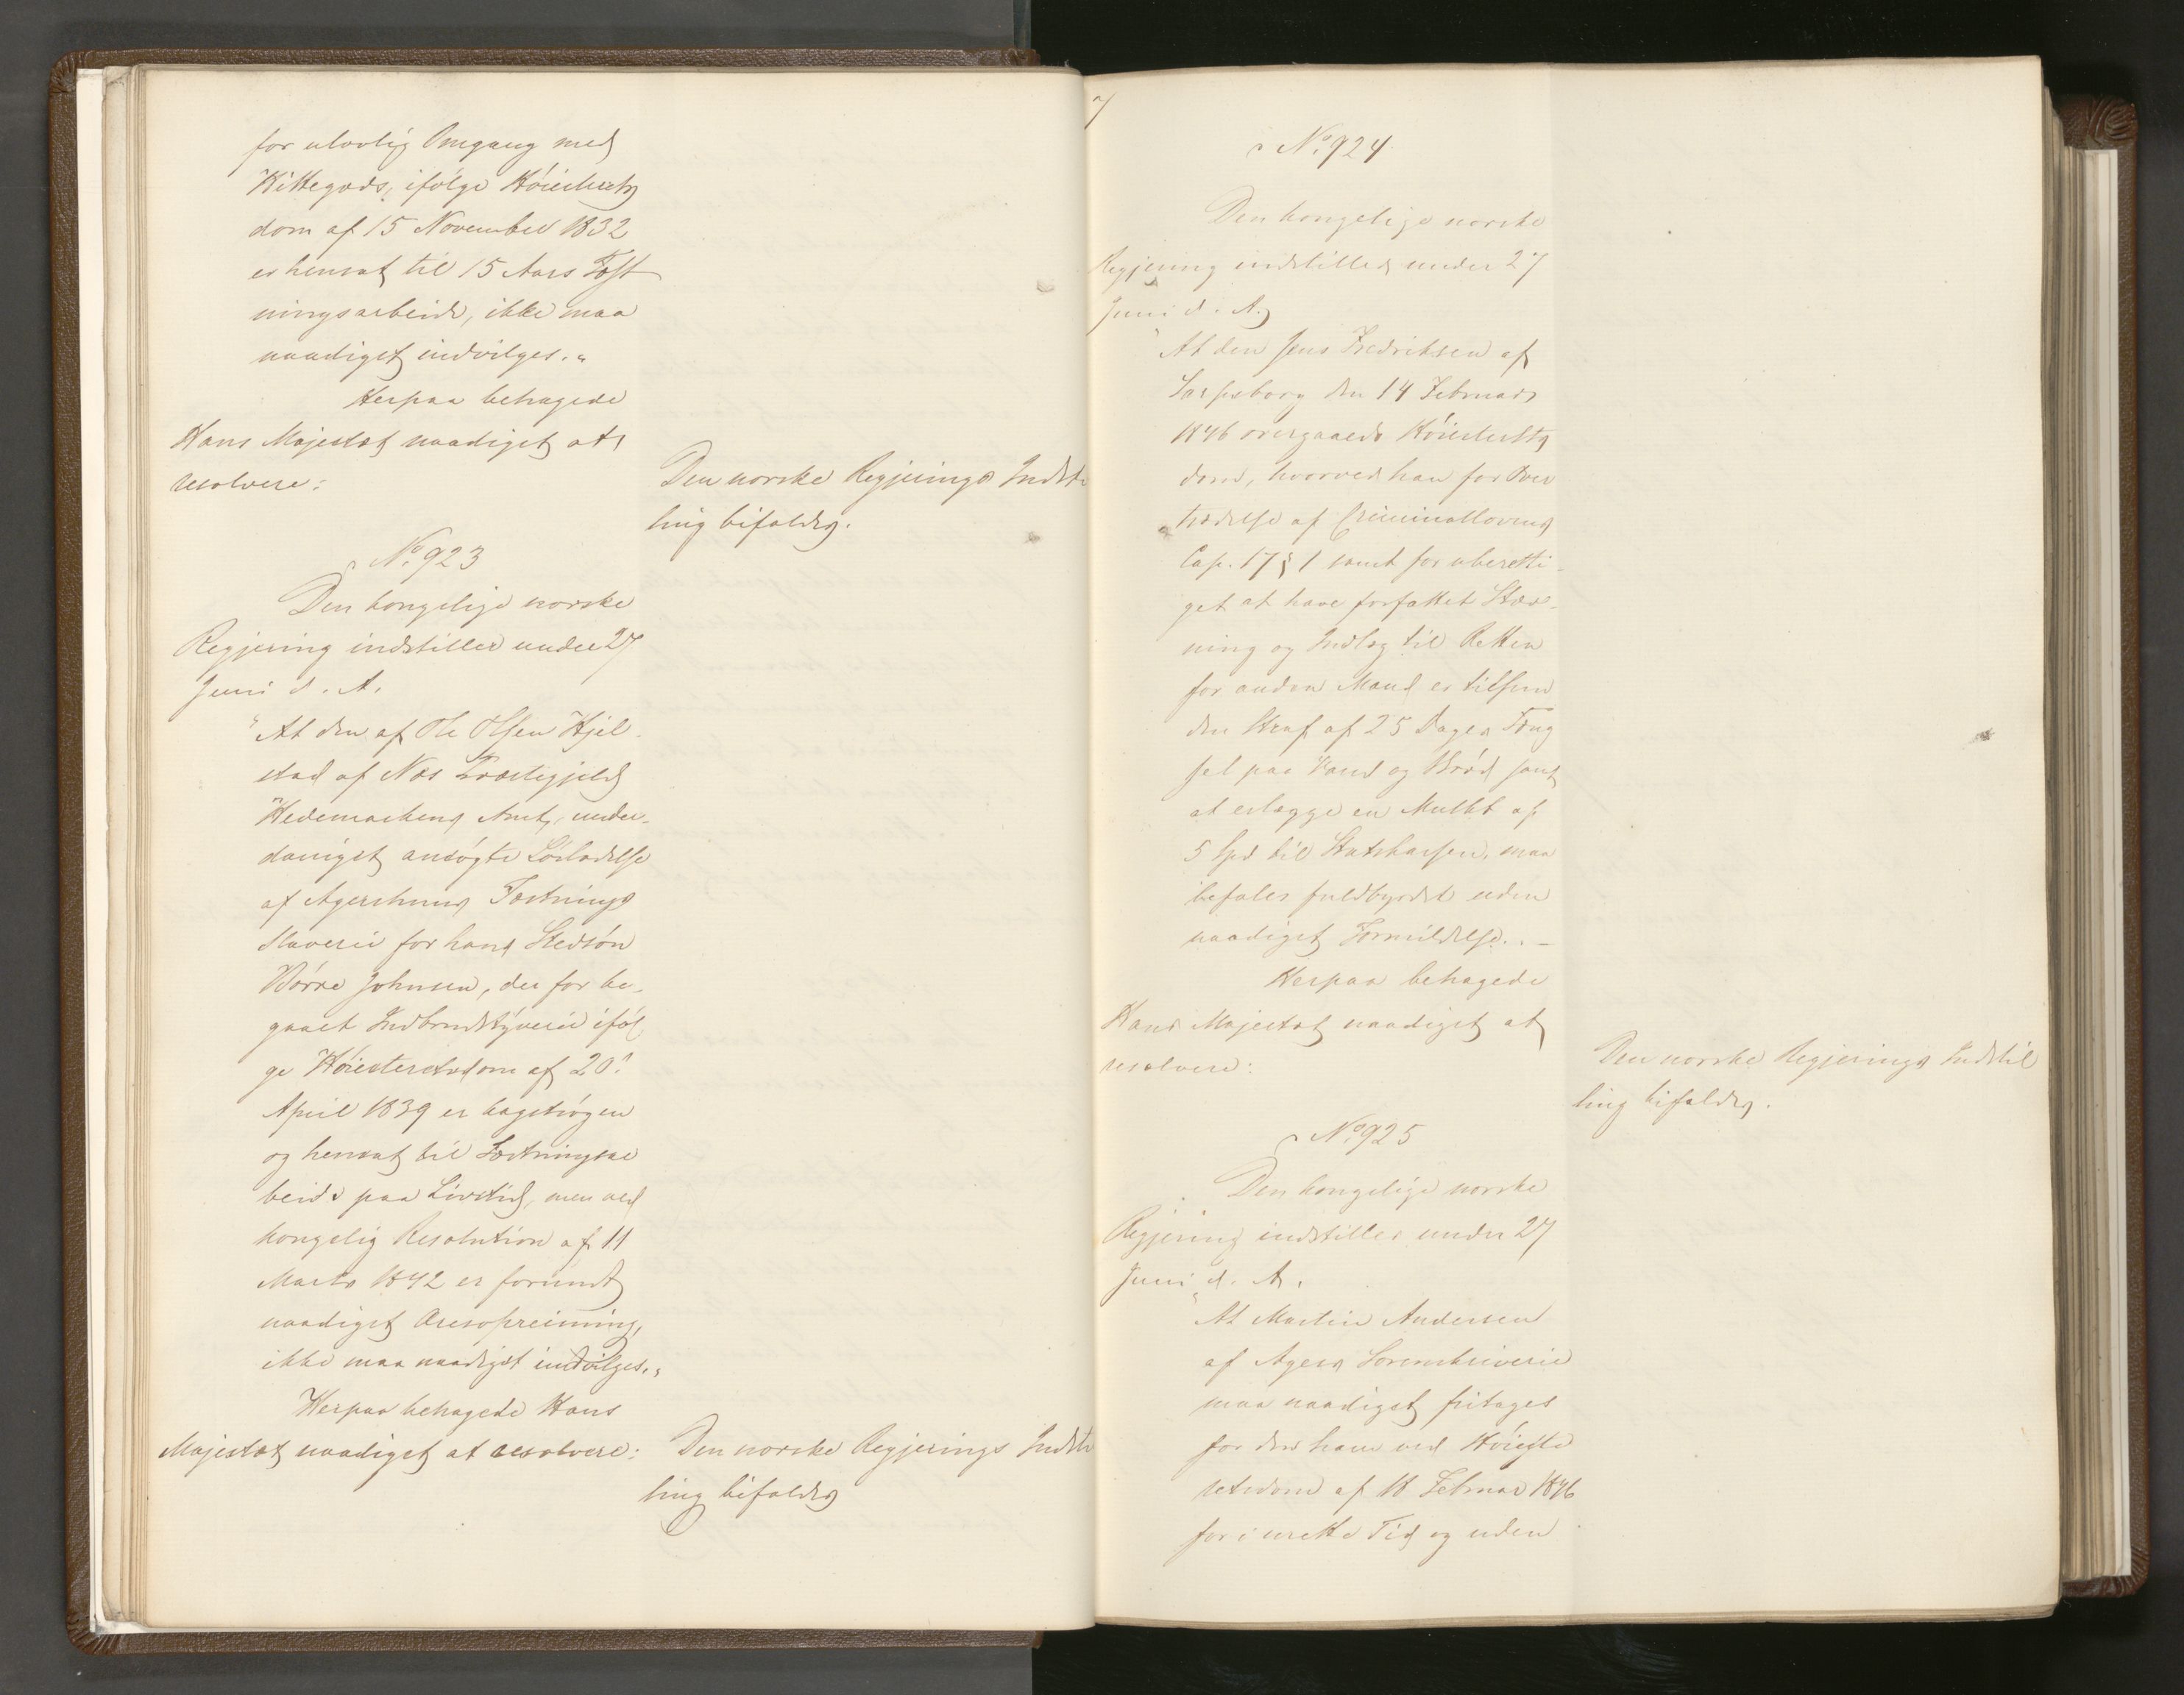 for ulovlig Omgang med
Kittegods, ifølge Høiesterets
dom af 15 November 1832
er hensat til 15 Aars Fæst
ningsarbeide, ikke maa
naadigst indvilges."
Herpaa behagede
Hans Majestæt naadigst at
resolvere:
Den norske Regjerings Indstil
ling bifaldes.
No 923
Den kongelige norske
Regjering indstiller under 27
Juni d. A.
"At den af Ole Olsen Hjel-
stad af Næs Præstegjeld
Hedemarkens Amt, under-
danigst ansøgte Løsladelse
af Agershuus Fæstnings
Slaverie for hans Stedsøn
Børre Johnsen, der for be-
gaaet Indbrudstyverie iføl
ge Høiesteretsdom af 20.
April 1839 er kagstrøgen
og hensat til Fæstningsar
beide paa Livstid, men ved
kongelig Resolution af 11
Marts 1842 er forundt
naadigst Æresopreisning,
ikke maa naadigst indvilges."
Herpaa behagede Hans
Majestæt naadigst at resolvere:
Den norske Regjerings Indstil
ling bifaldes
No 924
Den kongelige norske
Regjering indstiller under 27
Juni d. A.
"At den Jens Fredriksen af
Sarpsborg den 14 Februar
1846 overgaaede Høiesterets
dom, hvorved han for Over
trædelse af Criminallovens
Cap. 17 § 1 samt for uberetti-
get at have forfattet Stæv-
ning og Indlæg til Retten
for anden Mand er tilfun
den Straf af 25 Dages Fæng
sel paa Vand og Brød samt
at erlægge en Mulkt af
5 Spd til Statskassen, maa
befales fuldbyrdet uden
naadigst Formildelse." -
Herpaa behagede
Hans Majestæt naadigst at
resolvere:
Den norske Regjerings Indstil
ling bifaldes.
No 925
Den kongelige norske
Regjering indstiller under 27
Juni d. A.
"At Martin Andersen
af Agers Sorenskriverie
maa naadigst fritages
for den ham ved Høieste
retsdom af 18 Februar 1846
for i urette Tid og uden